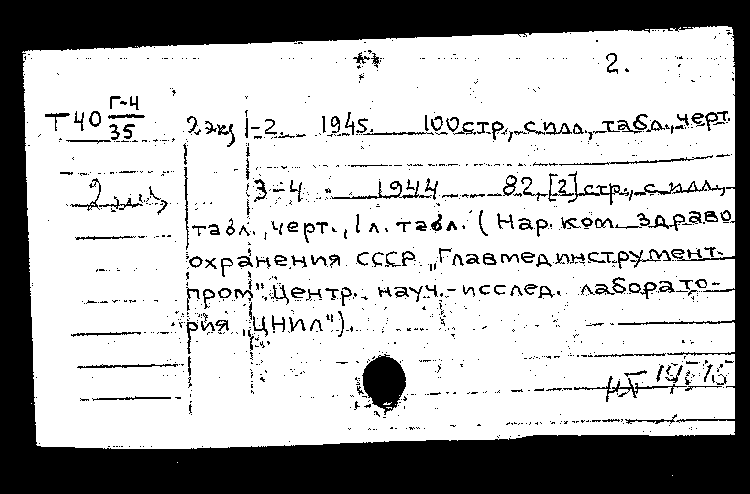 2.
Т40 Г-4/35 2 экз 1-2. 1945. 100стр., с илл., табл., черт.
2 экз 3-4 1944 82, [2] стр., с илл.,
табл., черт., 1 л. табл. (Нар. ком. здраво
охранения СССР „Главмединструмент-
пром". Центр. науч.-исслед. лаборато-
рия „ЦНИЛ").